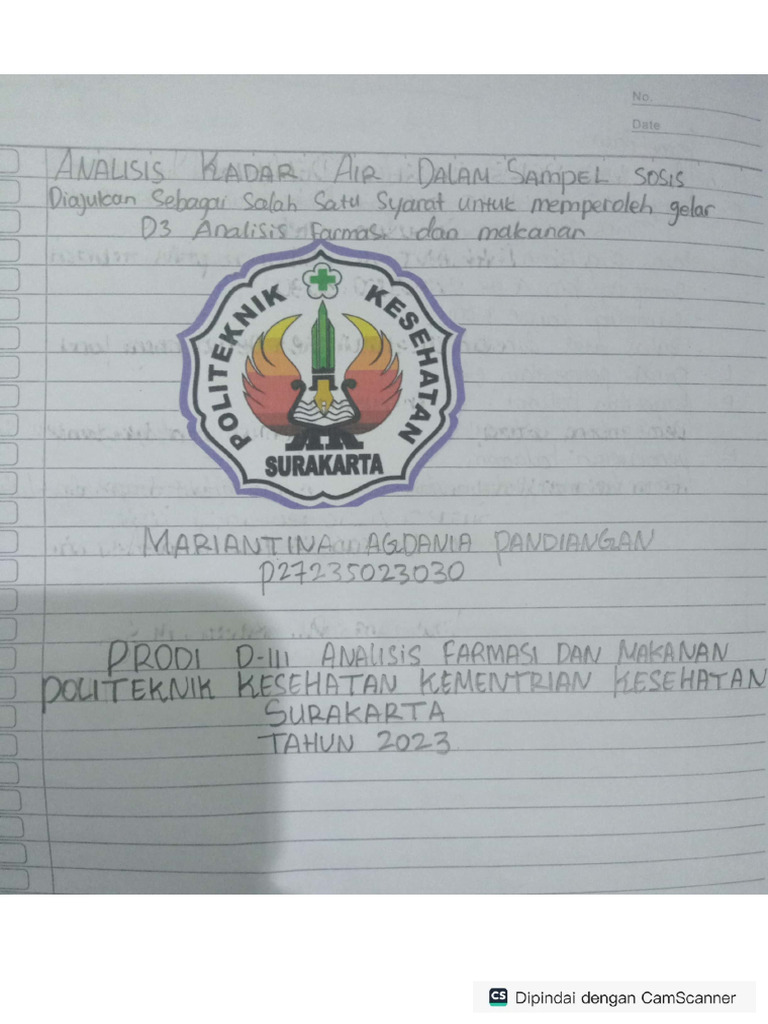 No.
Date
ANALISIS KADAR AIR DALAM SAMPEL SOSIS
Diajukan Sebagai Salah Satu Syarat untuk memperoleh gelar
D3 Analisis Farmasi dan makanan
POLITEKNIK KESEHATAN
SURAKARTA
MARIANTINA AGDANIA PANDIANGAN
P27235023030
PRODI D-III ANALISIS FARMASI DAN MAKANAN
POLITEKNIK KESEHATAN KEMENTRIAN KESEHATAN
SURAKARTA
TAHUN 2023
CS Dipindai dengan CamScanner